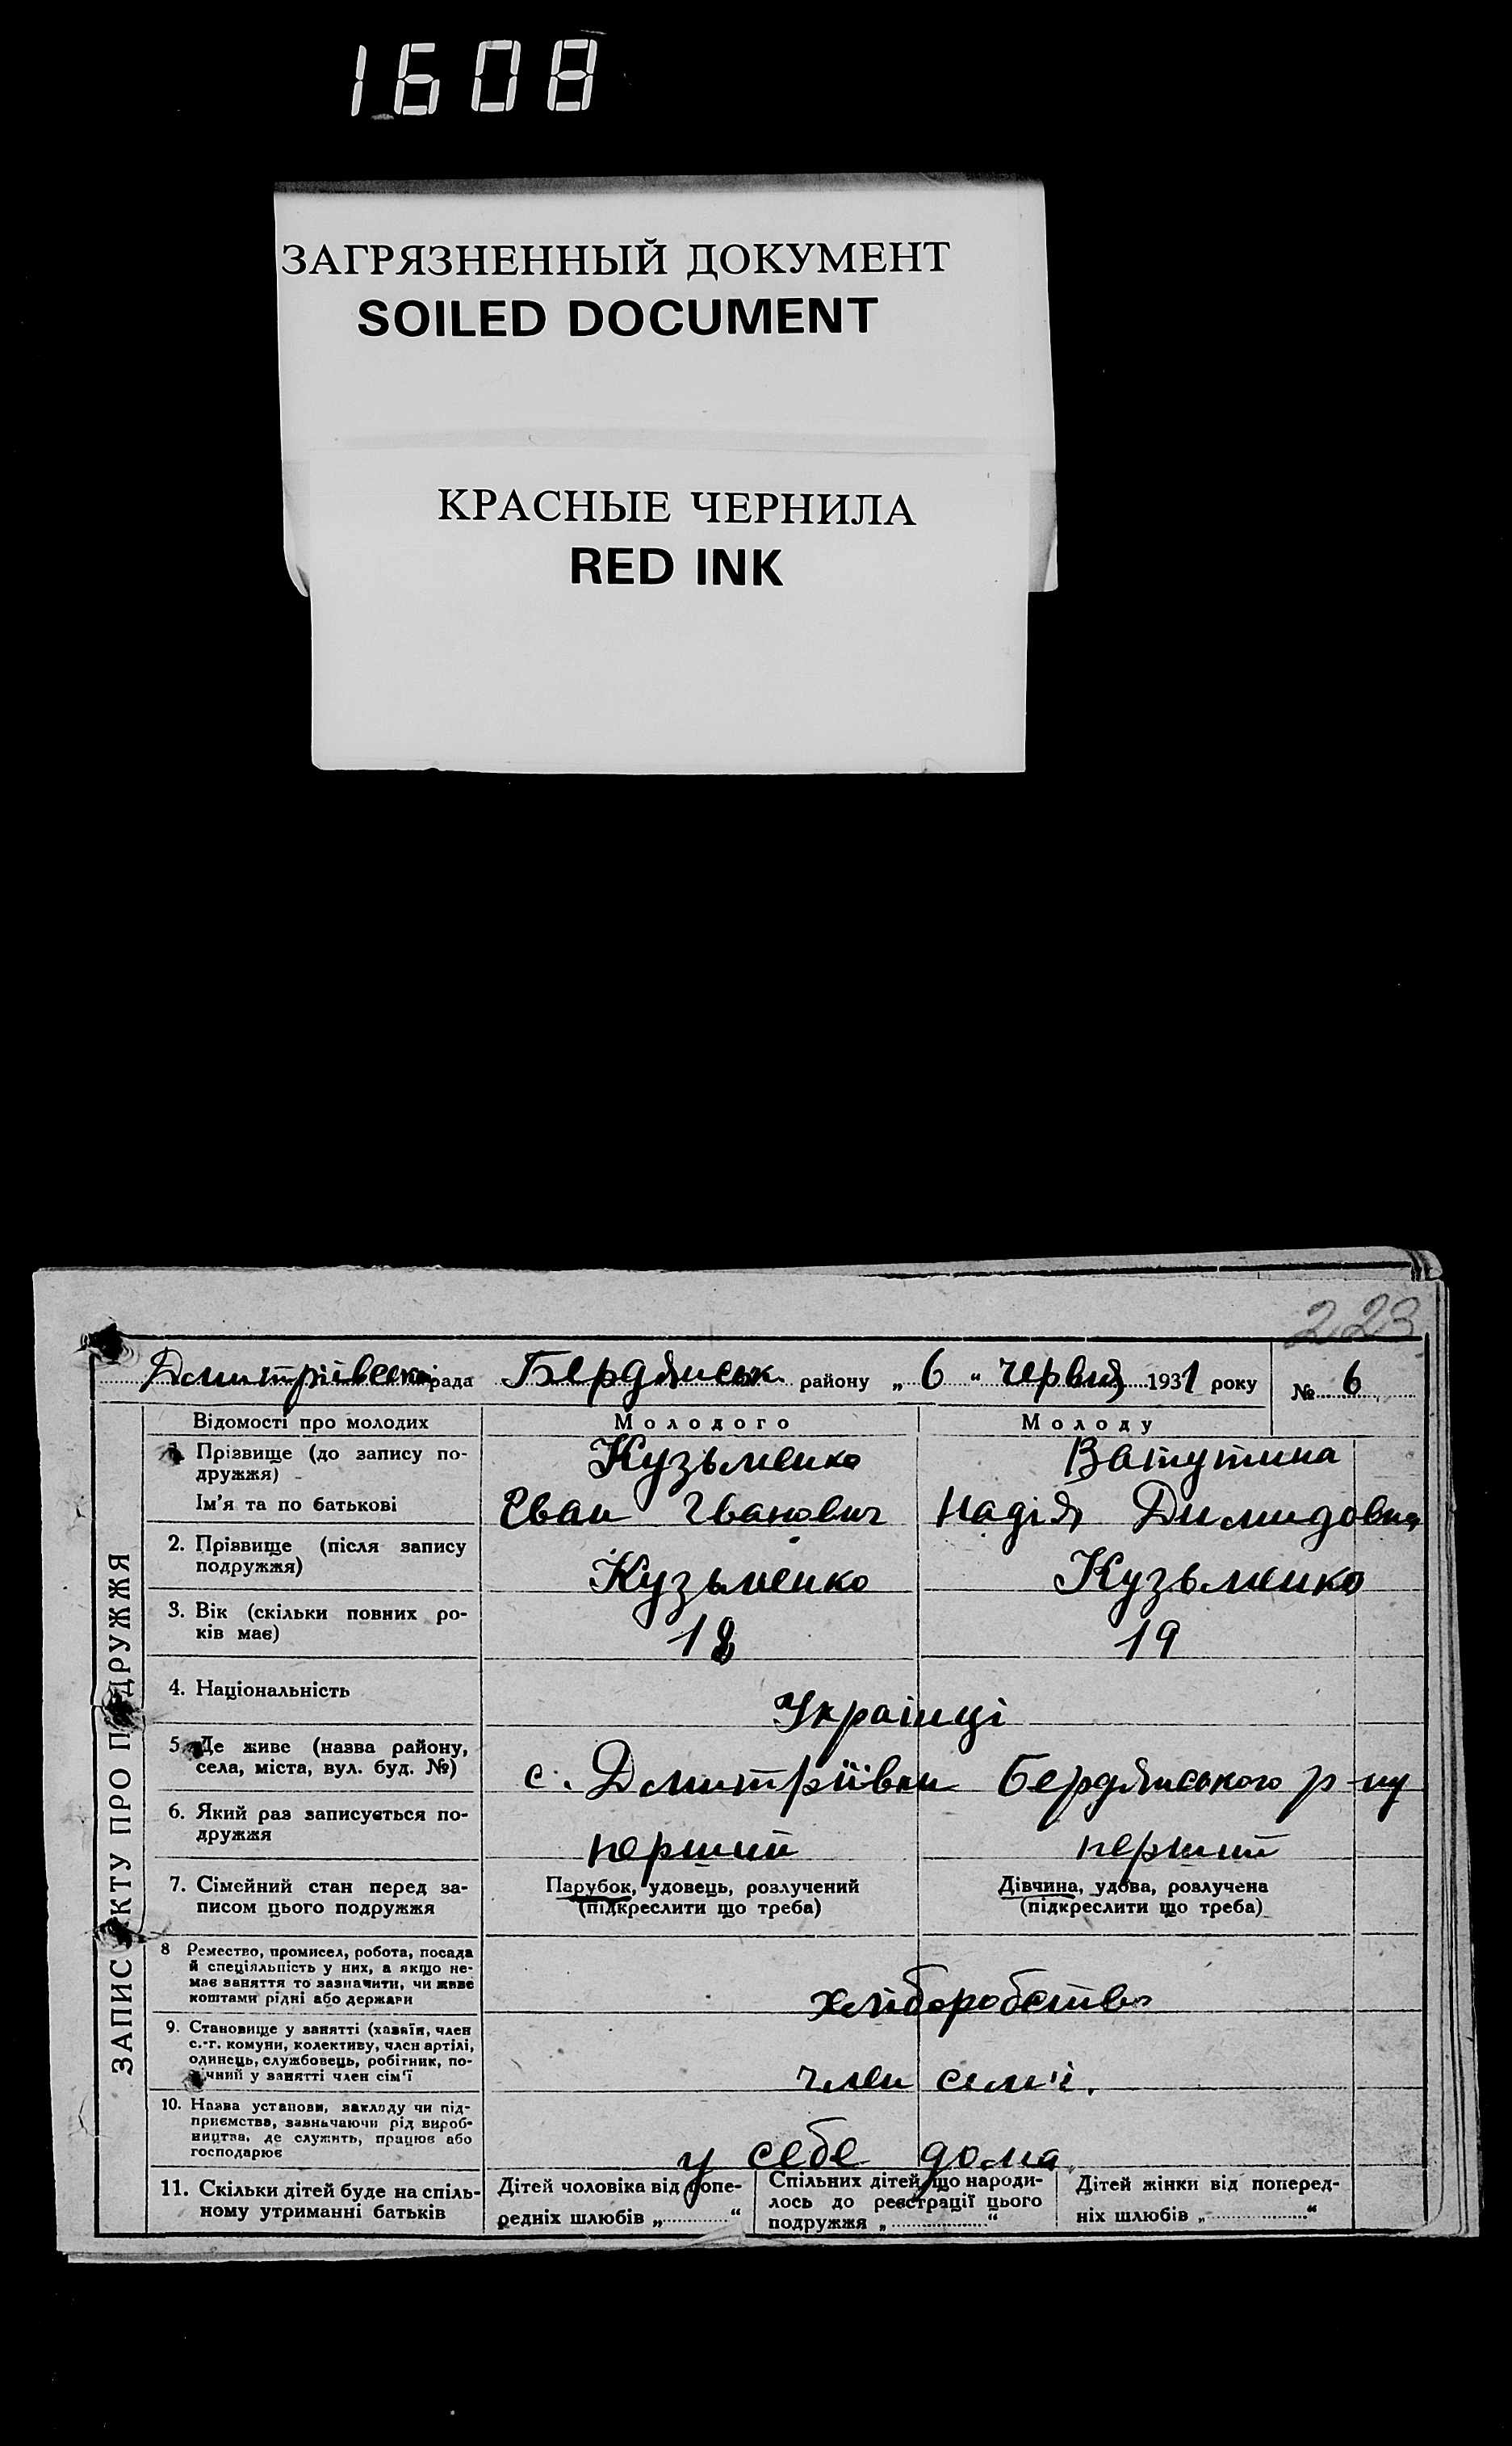 1608
ЗАГРЯЗНЕННЫЙ ДОКУМЕНТ
SOILED DOCUMENT
КРАСНЫЕ ЧЕРНИЛА
RED INK
223
Дмитріївська рада Бердянськ району „ 6 " червня 1931 року № 6
ЗАПИС АКТУ ПРО ПОДРУЖЖЯ
Відомості про молодих Молодого Молоду
1. Прізвище (до запису по-
дружжя) Кузьменко Ватутина
Ім'я та по батькові Еван Іванович Надія Димидовна
2. Прізвище (після запису
подружжя) Кузьменко Кузьменко
3. Вік (скільки повних ро-
ків має) 18 19
4. Національність Українці
5. Де живе (назва району,
села, міста, вул. буд. №) с. Дмитріївки Бердянського р-ну
6. Який раз записується по-
дружжя перший перший
7. Сімейний стан перед за-
писом цього подружжя
Парубок, удовець, розлучений
(підкреслити що треба)
Дівчина, удова, розлучена
(підкреслити що треба)
8 Ремество, промисел, робота, посада
й спеціяльність у них, а якщо не-
має заняття то зазначити, чи живе
коштами рідні або держави
хліборобство
9. Становище у занятті (хазяїн, член
с.-г. комуни, колективу, член артілі,
одинець, службовець, робітник, по-
мічний у занятті член сім'ї
член сем'ї.
10. Назва установи, закладу чи під-
приємства, зазначаючи рід вироб-
ництва, де служить, працює або
господарює
у себе дома
11. Скільки дітей буде на спіль-
ному утриманні батьків
Дітей чоловіка від попе-
редніх шлюбів „ “
Спільних дітей, що народи-
лось до реєстрації цього
подружжя „ “
Дітей жінки від поперед-
ніх шлюбів „ “